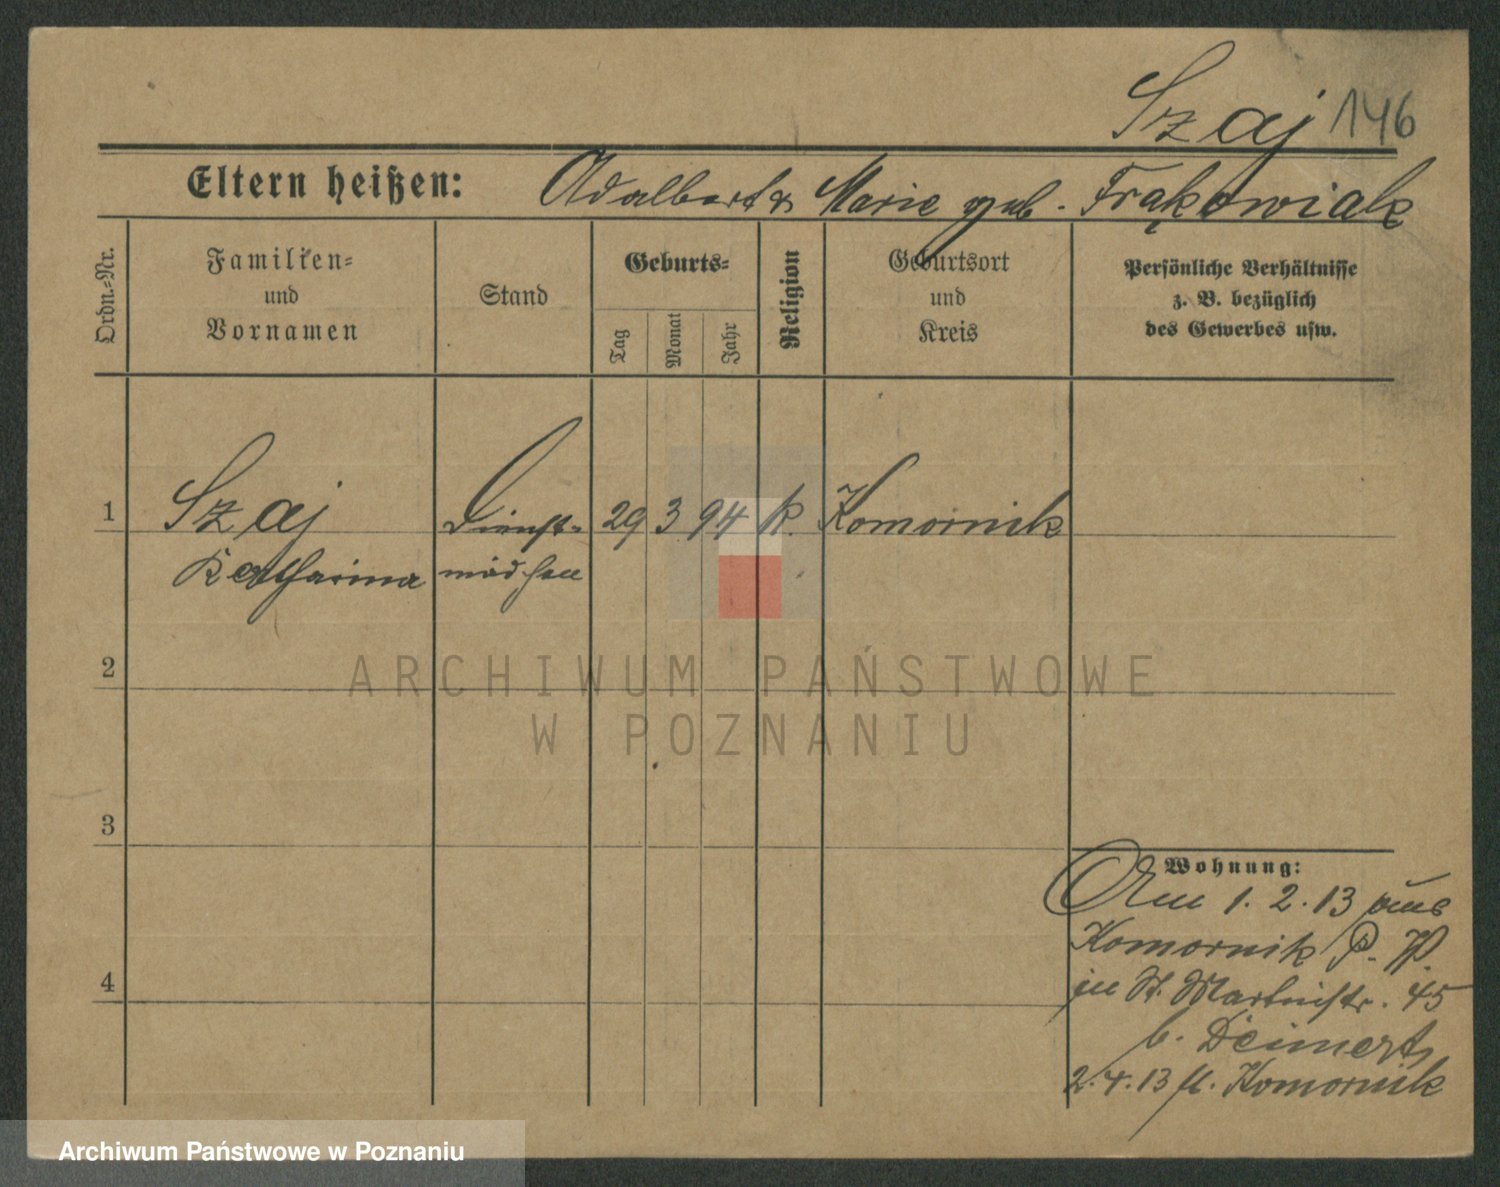 Szaj 146
Eltern heißen: Adalbert & Marie geb. Frąkowiak
Ordn.-Nr.
Familien-
und
Vornamen
Stand
Geburts-
Tag
Monat
Jahr
Religion
Geburtsort
und
Kreis
Persönliche Verhältnisse
z. B. bezüglich
des Gewerbes usw.
1 Szaj Dienst- 29 3 94 k. Komornik
Katharina mädchen
2
3
4
Wohnung:
Am 1. 2. 13 aus
Komornik P. W.
in St. Martinstr. 45
b. Deimert
2. 4. 13 n. Komornik
ARCHIWUM PAŃSTWOWE
W POZNANIU
Archiwum Państwowe w Poznaniu